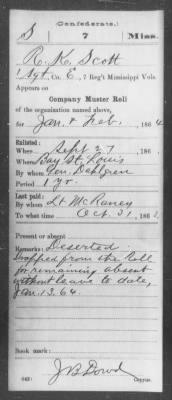 (Confederate.)
S 7 Miss.
R. K. Scott
1 Sgt, Co. E, 7 Reg't Mississippi Vols.
Appears on
Company Muster Roll
of the organization named above,
for Jan. & Feb., 1864
Enlisted:
When Sept 27, 186
Where Bay St. Louis
By whom Gen. Dahlgren
Period 1 yr.
Last paid:
By whom Lt McRaney
To what time Oct. 31, 186
Present or absent
Remarks: Deserted.
Dropped from the Roll
for remaining absent
without leave to date,
Jan. 13. 64.
Book mark:
J B Dowd
(642) Copyist.